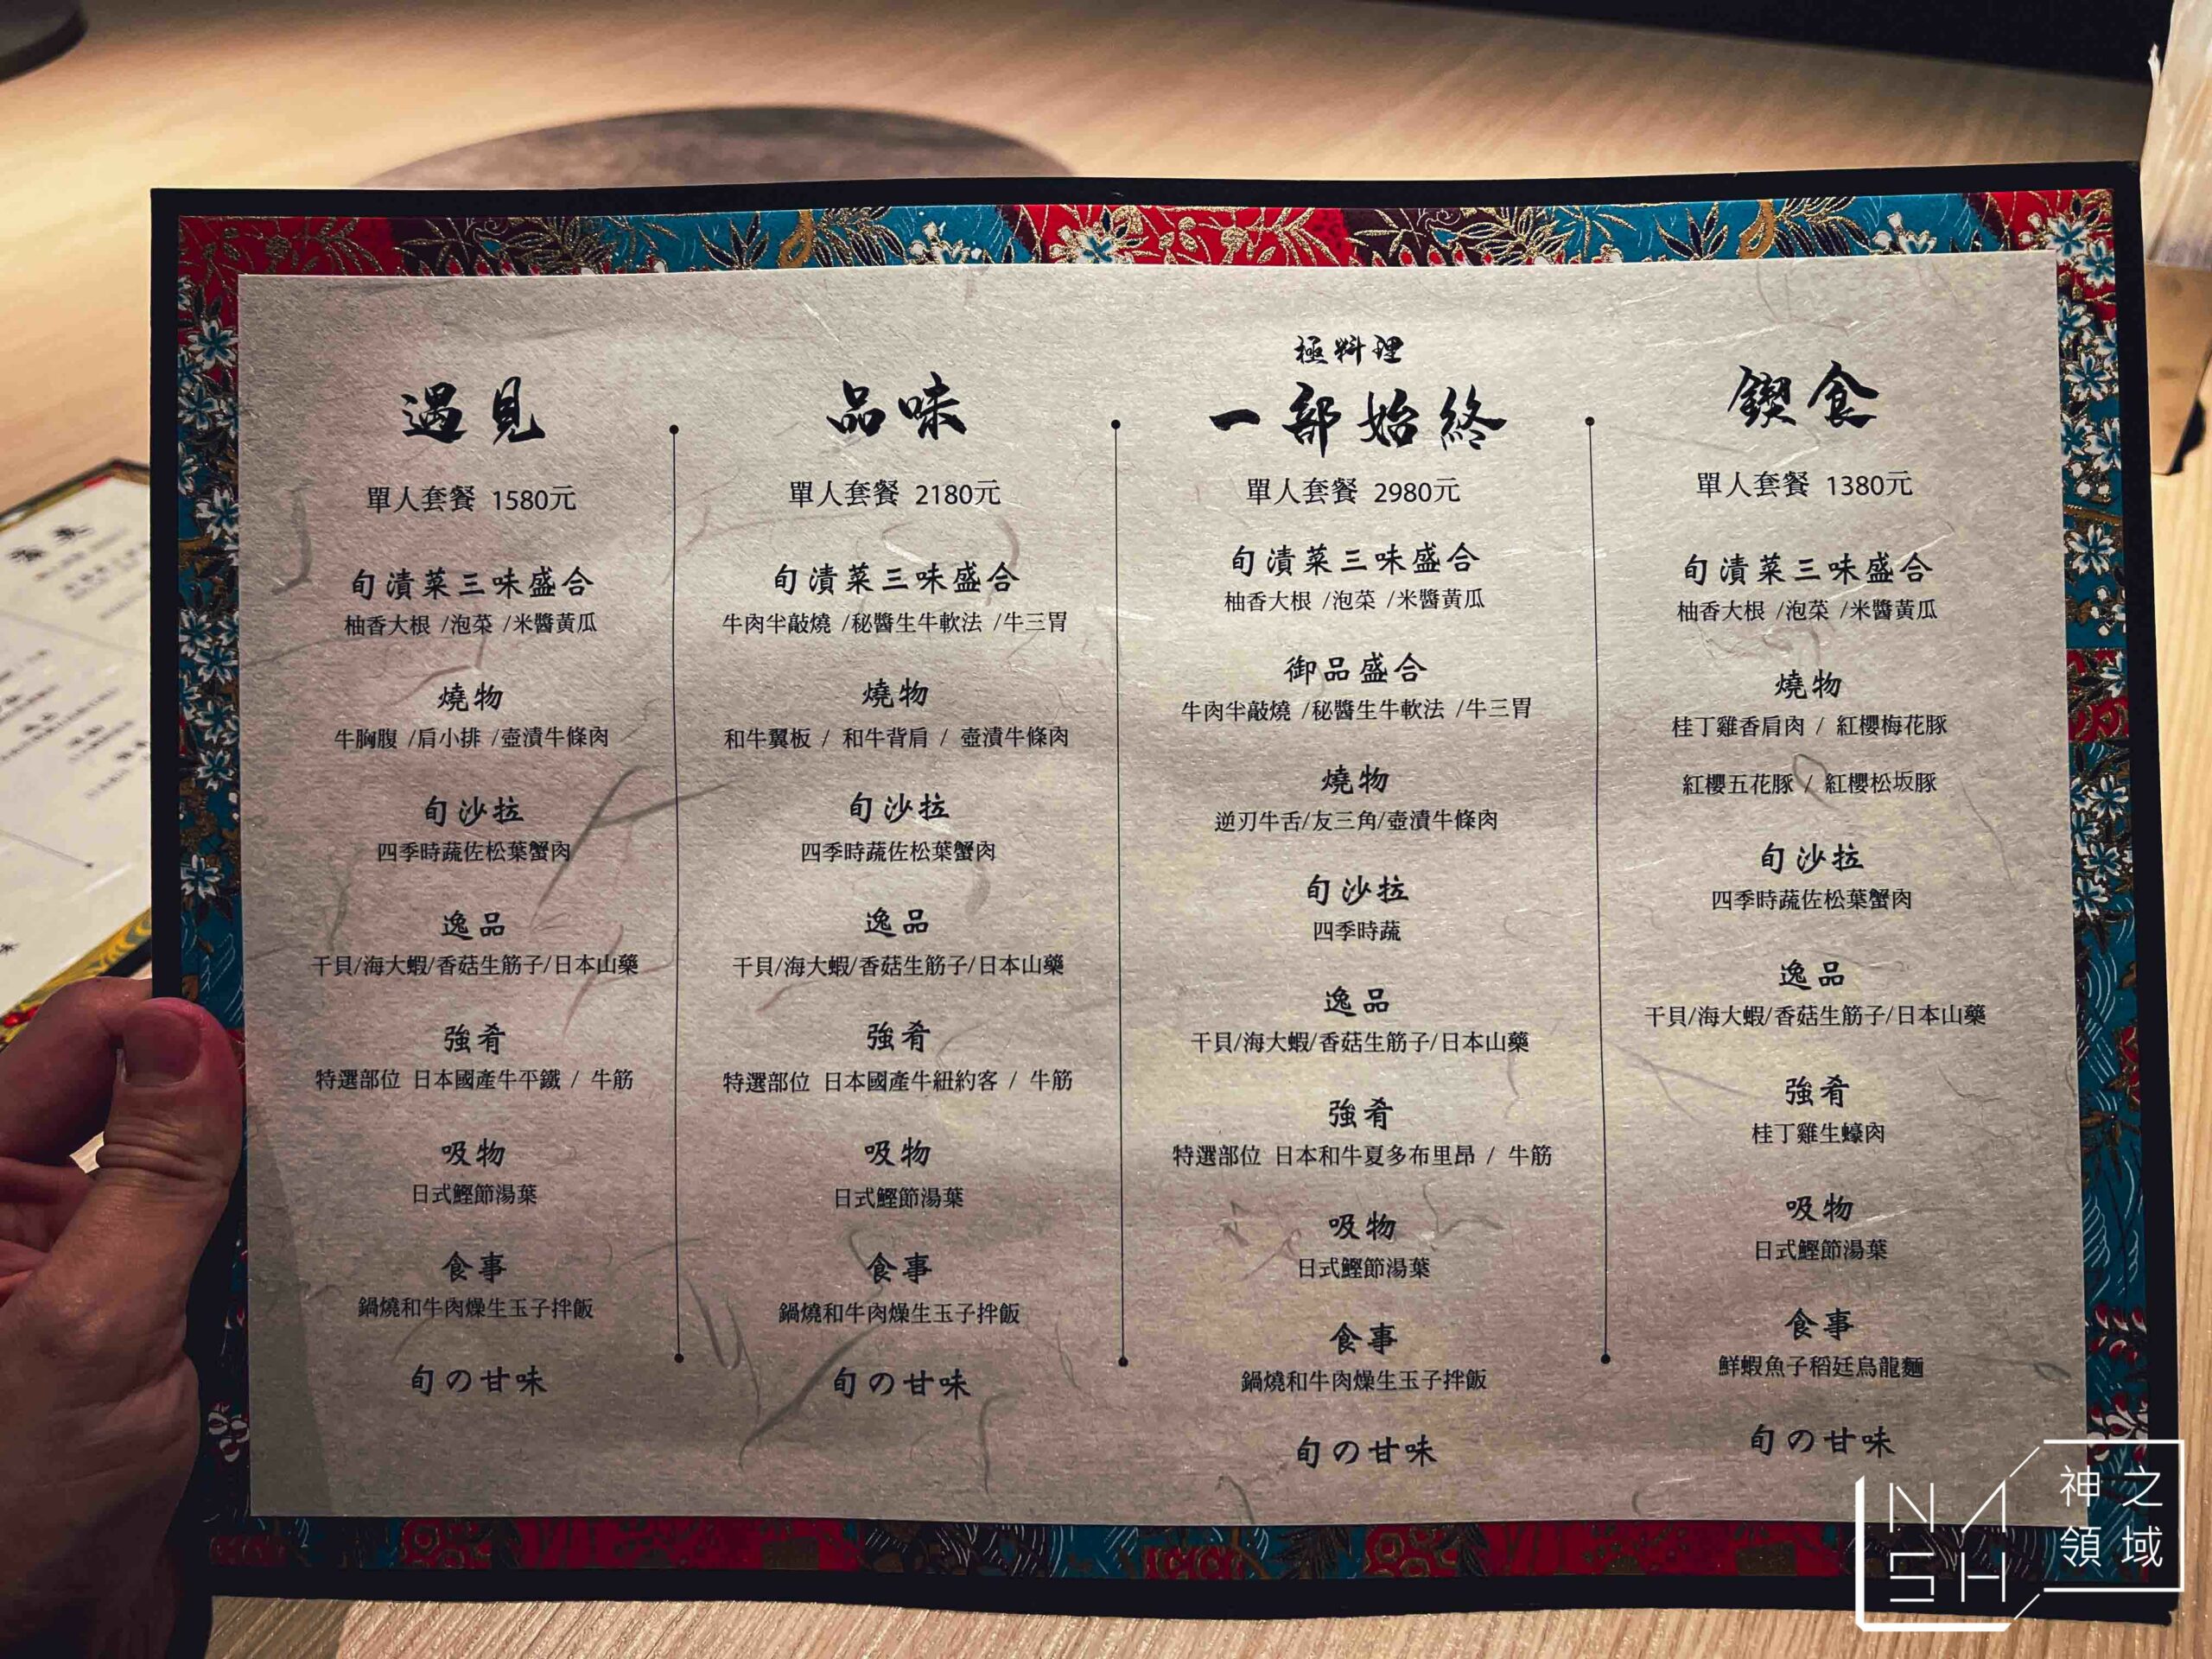 遇見
單人套餐 1580元
旬漬菜三味盛合
柚香大根 /泡菜 /米醬黃瓜
燒物
牛胸腹 /肩小排 /壺漬牛條肉
旬沙拉
四季時蔬佐松葉蟹肉
逸品
干貝/海大蝦/香菇生筋子/日本山藥
強肴
特選部位 日本國產牛平鐵 / 牛筋
吸物
日式鰹節湯葉
食事
鍋燒和牛肉燥生玉子拌飯
旬の甘味
品味
單人套餐 2180元
旬漬菜三味盛合
牛肉半敲燒 /秘醬生牛軟法 /牛三胃
燒物
和牛翼板 / 和牛背肩 / 壺漬牛條肉
旬沙拉
四季時蔬佐松葉蟹肉
逸品
干貝/海大蝦/香菇生筋子/日本山藥
強肴
特選部位 日本國產牛紐約客 / 牛筋
吸物
日式鰹節湯葉
食事
鍋燒和牛肉燥生玉子拌飯
旬の甘味
極料理
一部始終
單人套餐 2980元
旬漬菜三味盛合
柚香大根 /泡菜 /米醬黃瓜
御品盛合
牛肉半敲燒 /秘醬生牛軟法 /牛三胃
燒物
逆刃牛舌/友三角/壺漬牛條肉
旬沙拉
四季時蔬
逸品
干貝/海大蝦/香菇生筋子/日本山藥
強肴
特選部位 日本和牛夏多布里昂 / 牛筋
吸物
日式鰹節湯葉
食事
鍋燒和牛肉燥生玉子拌飯
旬の甘味
鍥食
單人套餐 1380元
旬漬菜三味盛合
柚香大根 /泡菜 /米醬黃瓜
燒物
桂丁雞香肩肉 / 紅櫻梅花豚
紅櫻五花豚 / 紅櫻松坂豚
旬沙拉
四季時蔬佐松葉蟹肉
逸品
干貝/海大蝦/香菇生筋子/日本山藥
強肴
桂丁雞生蠔肉
吸物
日式鰹節湯葉
食事
鮮蝦魚子稻廷烏龍麵
旬の甘味
NASH
神之
領域